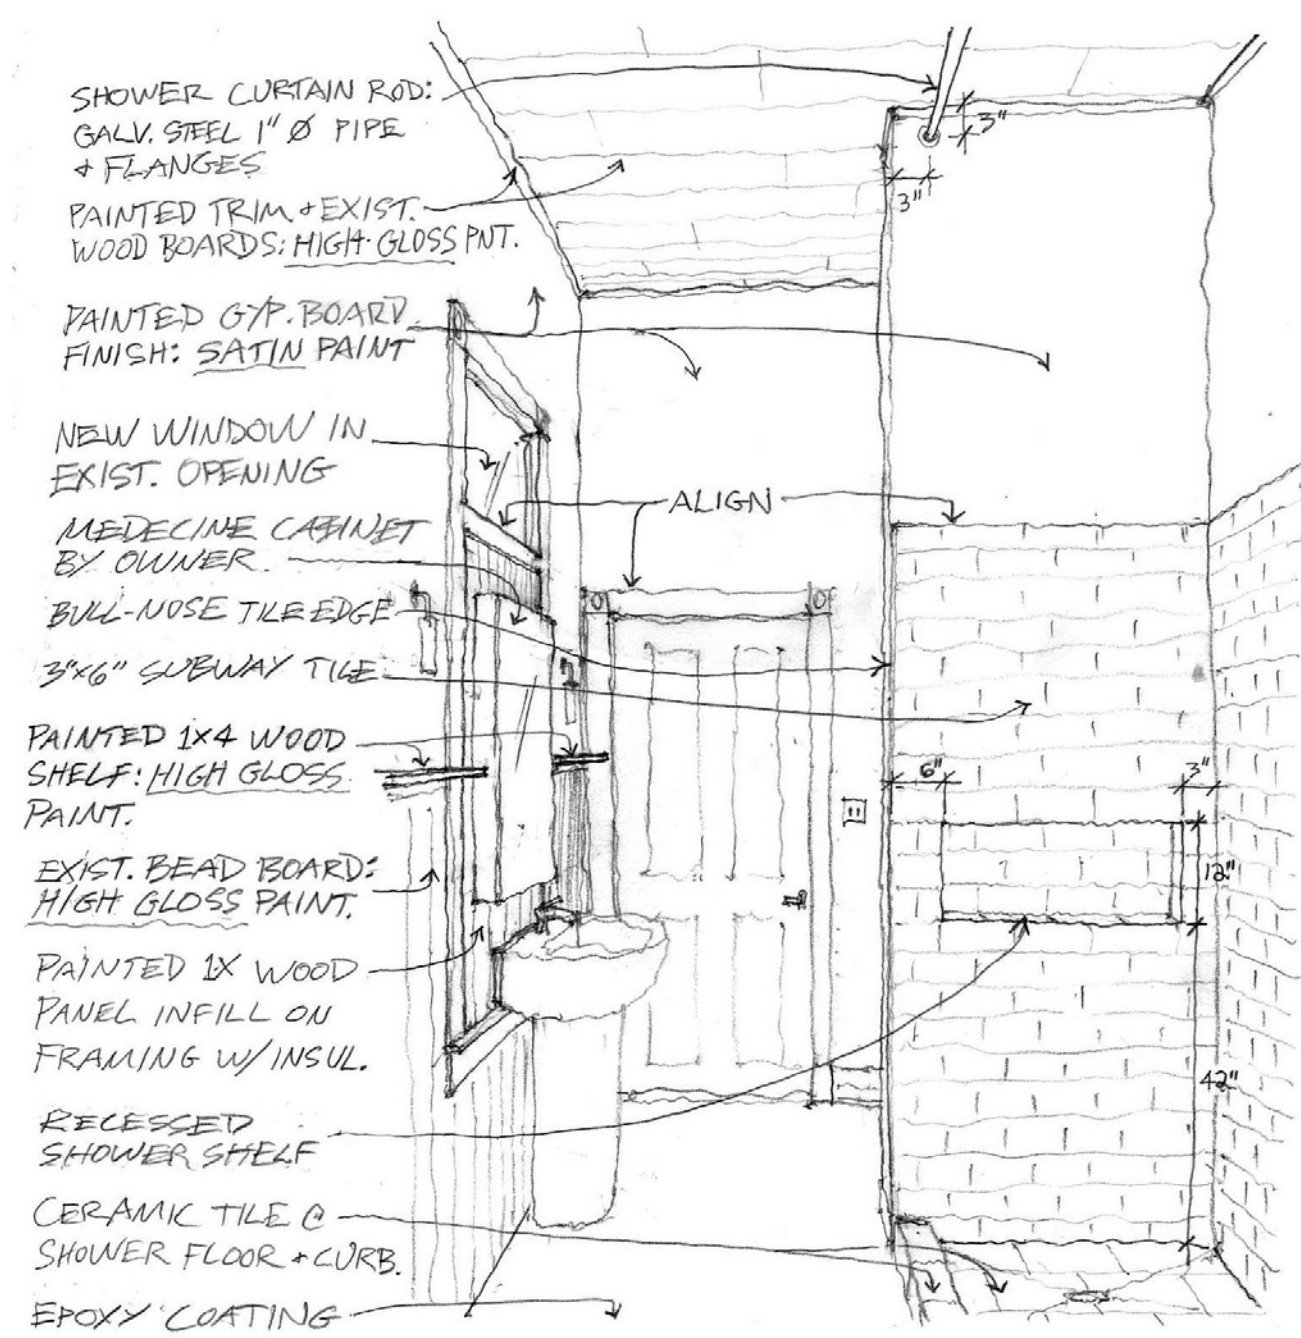 SHOWER CURTAIN ROD:
GALV. STEEL 1" Ø PIPE
& FLANGES
PAINTED TRIM & EXIST.
WOOD BOARDS: HIGH-GLOSS PNT.
PAINTED GYP. BOARD
FINISH: SATIN PAINT
NEW WINDOW IN
EXIST. OPENING
MEDECINE CABINET
BY OWNER
BULL-NOSE TILE EDGE
3"x6" SUBWAY TILE
PAINTED 1x4 WOOD
SHELF: HIGH GLOSS
PAINT.
EXIST. BEAD BOARD:
HIGH GLOSS PAINT.
PAINTED 1X WOOD
PANEL INFILL ON
FRAMING W/INSUL.
RECESSED
SHOWER SHELF
CERAMIC TILE @
SHOWER FLOOR & CURB.
EPOXY COATING
ALIGN
3"
3"
6"
3"
12"
42"